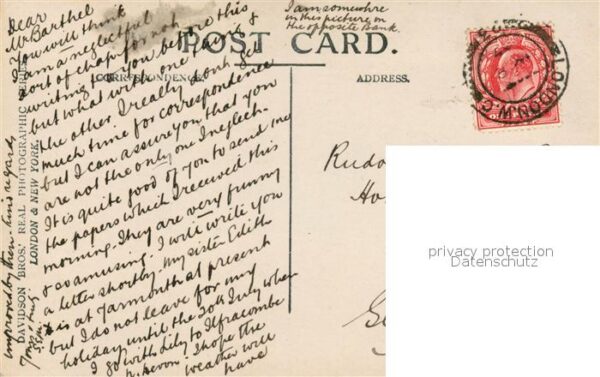 I am somewhere
in this picture on
the opposite Bank.
POST CARD.
CORRESPONDENCE.
ADDRESS.
Dear
Mr Barthel
You will think
I am a neglectful
sort of chap for not
writing you before this
but what with one party &
the other I really don't get
much time for correspondence
but I can assure you that you
are not the only one I neglect.
It is quite good of you to send me
the papers which I received this
morning. They are very funny
& so amusing. I will write you
a letter shortly. My sister Edith
is at Yarmouth at present
but I do not leave for my
holiday until the 20th July when
I go with Lily to Ilfracombe
N. Devon, I hope the
weather will
have
improved by then. Kind regards
DAVIDSON BROS.' REAL PHOTOGRAPHIC SERIES.
LONDON & NEW YORK.
LONDON.W.C
Rudo
Ho
privacy protection
Datenschutz